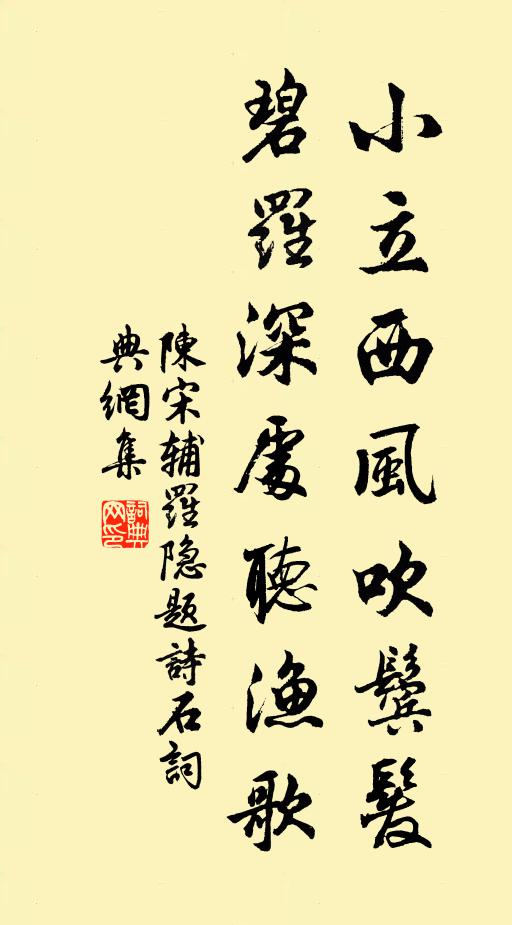 小立西風吹鬓髮
碧羅深處聽漁歌
陳宋輔羅隐題詩石詞
典網集
詞典
网印